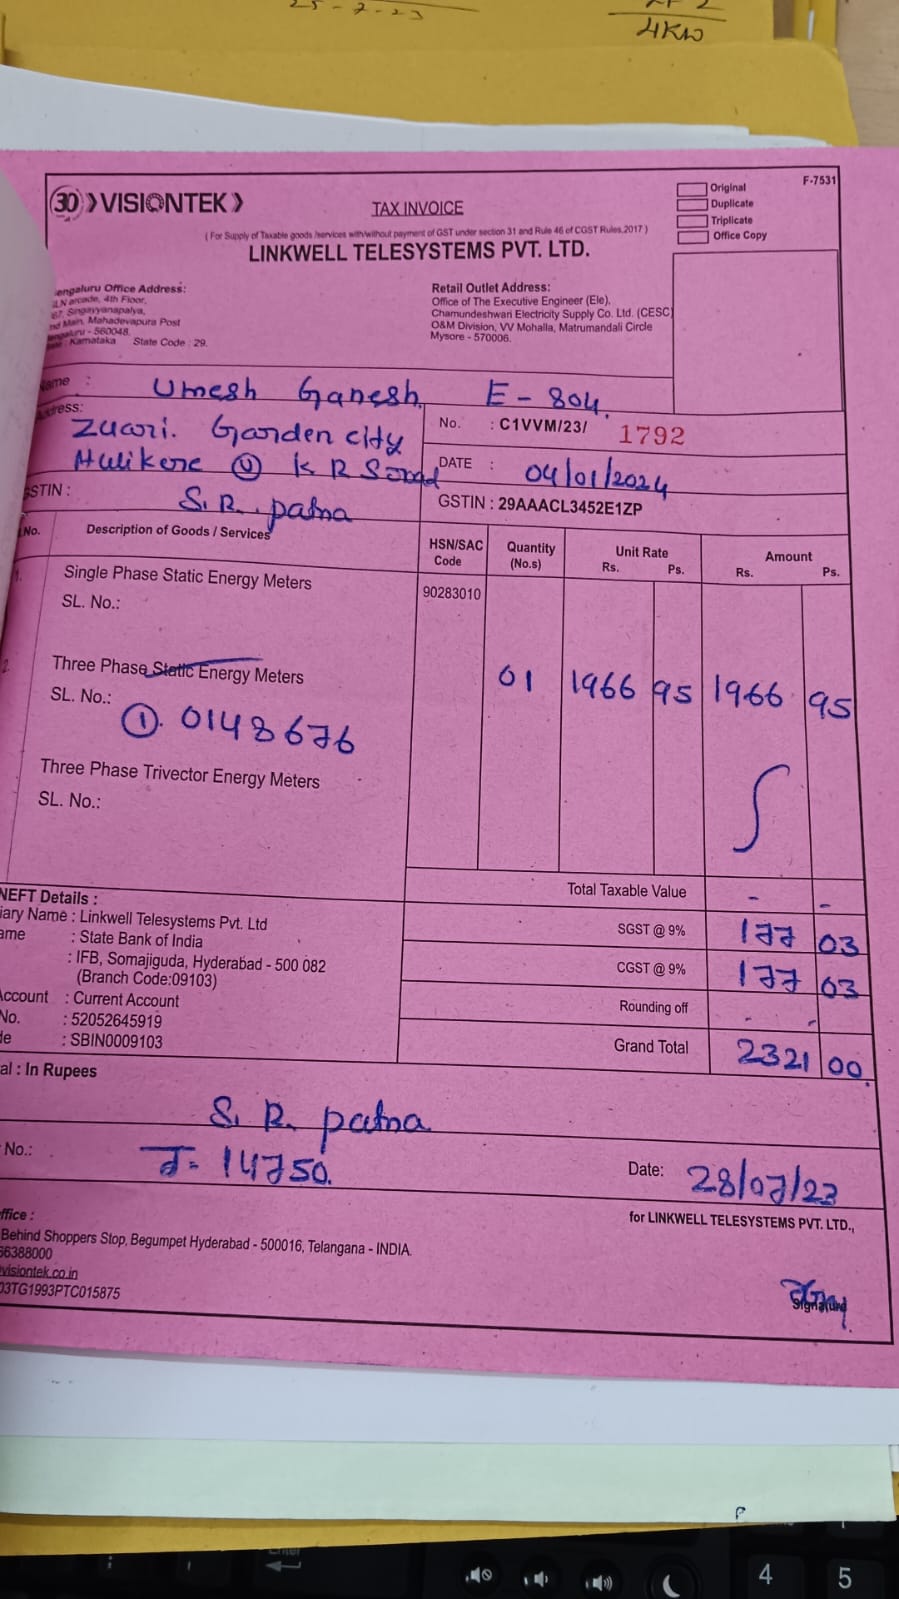 25-7-23
4KW
30 VISIONTEK
TAX INVOICE
Original
Duplicate
Triplicate
Office Copy
F-7531
( For Supply of Taxable goods /services with/without payment of GST under section 31 and Rule 46 of CGST Rules,2017 )
LINKWELL TELESYSTEMS PVT. LTD.
engaluru Office Address:
LN arcade, 4th Floor,
67, Singayyanapalya,
nd Main, Mahadevapura Post
engaluru - 560048.
: Karnataka State Code : 29.
Retail Outlet Address:
Office of The Executive Engineer (Ele),
Chamundeshwari Electricity Supply Co. Ltd. (CESC)
O&M Division, VV Mohalla, Matrumandali Circle
Mysore - 570006.
ame : Umesh Ganesh, E - 804,
ddress: Zuari. Garden city
Hulikere K R
S. R. patna
No. : C1VVM/23/ 1792
DATE : 04/01/2024
GSTIN :
GSTIN : 29AAACL3452E1ZP
.No. Description of Goods / Services HSN/SAC Code Quantity (No.s) Unit Rate Rs. Ps. Amount Rs. Ps.
1. Single Phase Static Energy Meters 90283010
SL. No.:
2. Three Phase Static Energy Meters 01 1966 95 1966 95
SL. No.:
① 0148676
Three Phase Trivector Energy Meters
SL. No.:
Total Taxable Value - -
SGST @ 9% 177 03
CGST @ 9% 177 03
Rounding off - -
Grand Total 2321 00
NEFT Details :
iary Name : Linkwell Telesystems Pvt. Ltd
ame : State Bank of India
: IFB, Somajiguda, Hyderabad - 500 082
(Branch Code:09103)
Account : Current Account
No. : 52052645919
de : SBIN0009103
al : In Rupees
S. R. patna
No.: J- 14750.
Date: 28/07/23
for LINKWELL TELESYSTEMS PVT. LTD.,
ffice :
Behind Shoppers Stop, Begumpet Hyderabad - 500016, Telangana - INDIA.
66388000
visiontek.co.in
03TG1993PTC015875
Signature
Enter
4
5